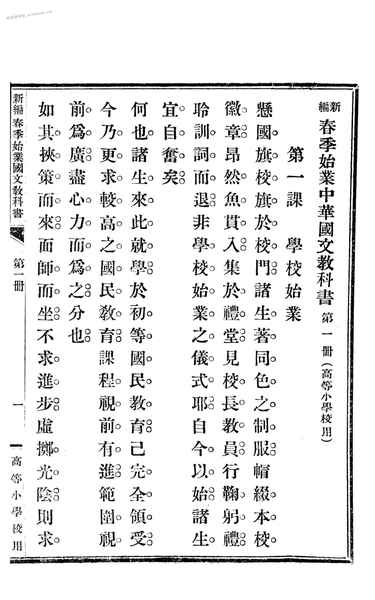 新編 春季始業中華國文教科書 第一冊(高等小學校用)
第一課 學校始業
懸國旗校旗於校門諸生著同色之制服帽綴本校
徽章昂然魚貫入集於禮堂見校長教員行鞠躬禮
聆訓詞而退非學校始業之儀式耶自今以始諸生
宜自奮矣
何也諸生來此就學於初等國民教育已完全領受
今乃更求較高之國民教育課程視前有進範圍視
前爲廣盡心力而爲之分也
如其挾策而來面師而坐不求進步虛擲光陰則求
新編 春季始業國文教科書
第一冊
一
高等小學校用